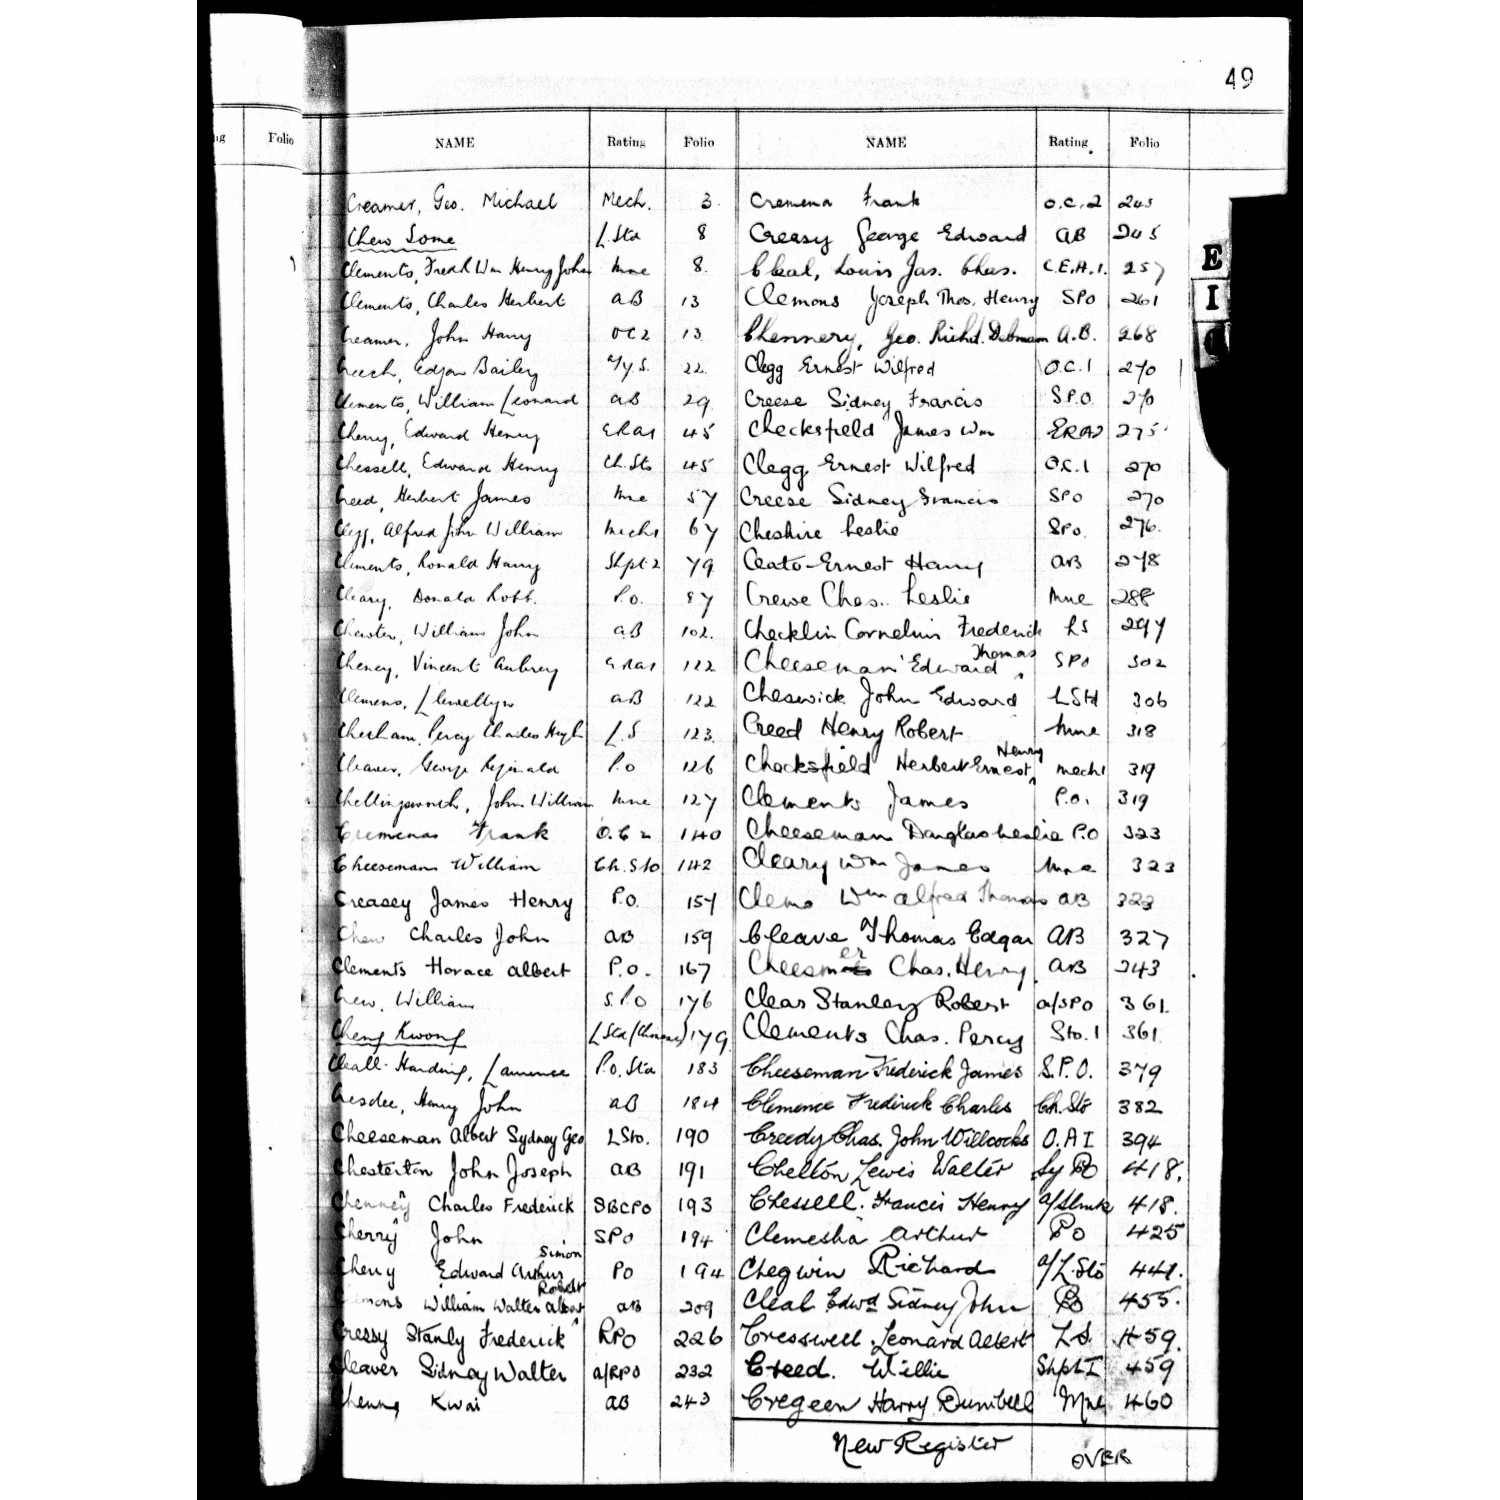 49
Folio
NAME Rating Folio
Creamer, Geo. Michael Mech. 3.
Chew Some L.Std 8
Clements, Fredk Wm Henry John Mne 8.
Clements, Charles Herbert AB 13
Creamer, John Harry OC2 13.
Creech, Edgar Bailey A/y.S. 22.
Clements, William Leonard AB 29
Cherry, Edward Henry ERA1 45
Chessell, Edward Henry Ch.Sto 45
Creed, Herbert James Mne 57
Clegg, Alfred John William Mech1 67
Clements, Ronald Harry Shpt.2 79
Cleary, Donald Robt. P.O. 87
Chester, William John AB 102.
Cheney, Vincent Aubrey ERA1 122
Clemens, Llewellyn AB 122
Chesham, Percy Charles Hugh L.S 123.
Cleaver, George Reginald P.O 126
Chellingworth, John William Mne 127
Cremenas Frank O.C 2 140
Cheesemans William Ch.Sto 142
Creasey James Henry P.O. 157
Chew Charles John AB 159
Clements Horace Albert P.O. 167
Crew, William S.P.O 176
Cheng Kwong L Std (Chinese) 179
Cleall-Harding, Laurence P.O. Std 183
Cresdee, Henry John AB 184
Cheeseman Albert Sydney Geo LSto. 190
Chesterton John Joseph AB 191
Chenney Charles Frederick SBCPO 193
Cherry John SPO 194
Cherry Edward Arthur Simon PO 194
Clemons William Walter Albert Robert AB 209
Cressy Stanly Frederick RPO 226
Cleaver Sidney Walter A/RPO 232
Cheung Kwai AB 243
NAME Rating Folio
Cremena Frank O.C.2 243
Creasy George Edward AB 245
Cleal, Louis Jas. Chas. C.E.A.1. 257
Clemons Joseph Thos. Henry SPO 261
Chennery, Geo. Richd. A.B. 268
Clegg Ernest Wilfred O.C.1 270
Creese Sidney Francis S.P.O. 270
Checksfield James Wm ERA2 275
Clegg Ernest Wilfred O.C.1 270
Creese Sidney Francis SPO 270
Cheshire Leslie SPO. 276.
Ceato-Ernest Harry AB 278
Crewe Chas. Leslie Mne 288
Checklin Cornelius Frederick LS 297
Cheeseman Edward Thomas SPO 302
Cheswick John Edward LStd 306
Creed Henry Robert Mne 318
Checksfield Herbert Ernest Henry Mech1 319
Clements James P.O. 319
Cheeseman Douglas Leslie P.O 323
Cleary Wm James Mne 323
Clemo Wm Alfred Thomas AB 323
Cleave Thomas Edgar AB 327
Cheesmer Chas. Henry AB 343
Clear Stanley Robert A/SPO 361.
Clements Chas. Percy Sto. 1 361
Cheeseman Frederick James S.P.O. 379
Clemence Frederick Charles Ch.Sto 382
Creedy Chas. John Willcocks O.A I 394
Chelton Lewis Walter Sy PO 418.
Chessell. Francis Henry 418.
Clemesha Arthur PO 425
Chegwin Richard A/L.Sto 441.
Cleal Edwd Sidney John PO 455.
Cresswell Leonard Albert L.S. 459.
Creed. Willie Shpt I 459
Cregeen Harry Dumbell Mne 460
New Register
OVER
E
I